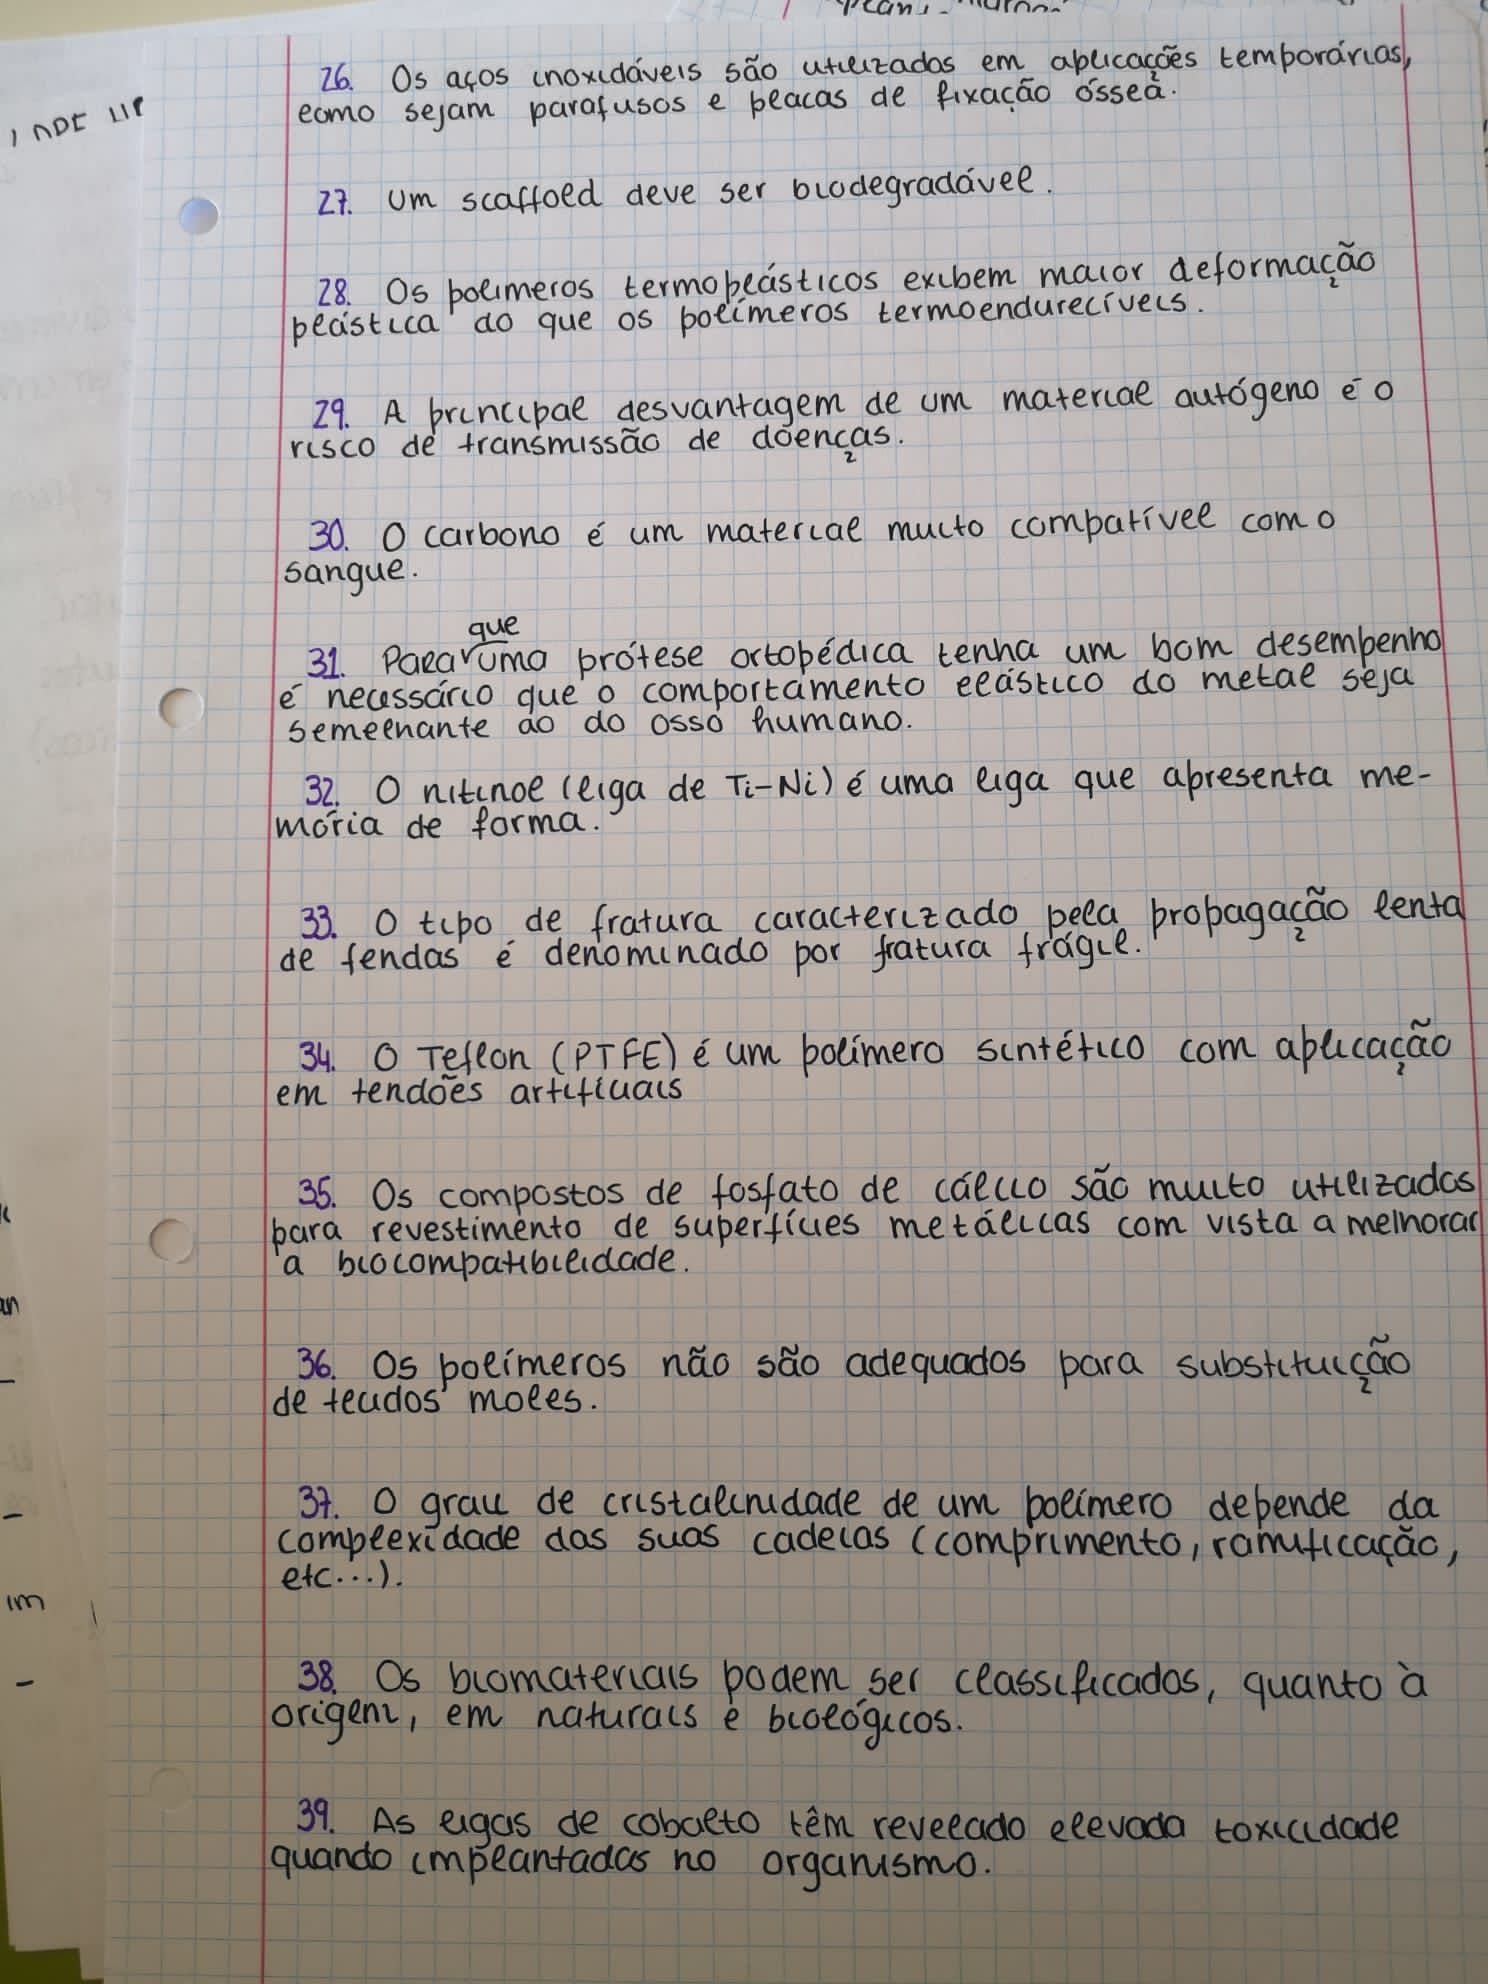 26. Os aços inoxidáveis são utilizados em aplicações temporárias,
como sejam parafusos e placas de fixação óssea.
27. Um scaffold deve ser biodegradável.
28. Os polimeros termoplásticos exibem maior deformação
plástica do que os polímeros termoendurecíveis.
29. A principal desvantagem de um material autógeno é o
risco de transmissão de doenças.
30. O carbono é um material muito compatível com o
sangue.
que
31. Para uma prótese ortopédica tenha um bom desempenho
é necessário que o comportamento elástico do metal seja
semelhante ao do osso humano.
32. O nitinol (liga de Ti-Ni) é uma liga que apresenta me-
mória de forma.
33. O tipo de fratura caracterizado pela propagação lenta
de fendas é denominado por fratura frágil.
34. O Teflon (PTFE) é um polímero sintético com aplicação
em tendões artificiais
35. Os compostos de fosfato de cálcio são muito utilizados
para revestimento de superfícies metálicas com vista a melhorar
a biocompatibilidade.
36. Os polímeros não são adequados para substituição
de tecidos moles.
37. O grau de cristalinidade de um polímero depende da
complexidade das suas cadeias (comprimento, ramificação,
etc...).
38. Os biomateriais podem ser classificados, quanto à
origem, em naturais e biológicos.
39. As ligas de cobalto têm revelado elevada toxicidade
quando implantadas no organismo.